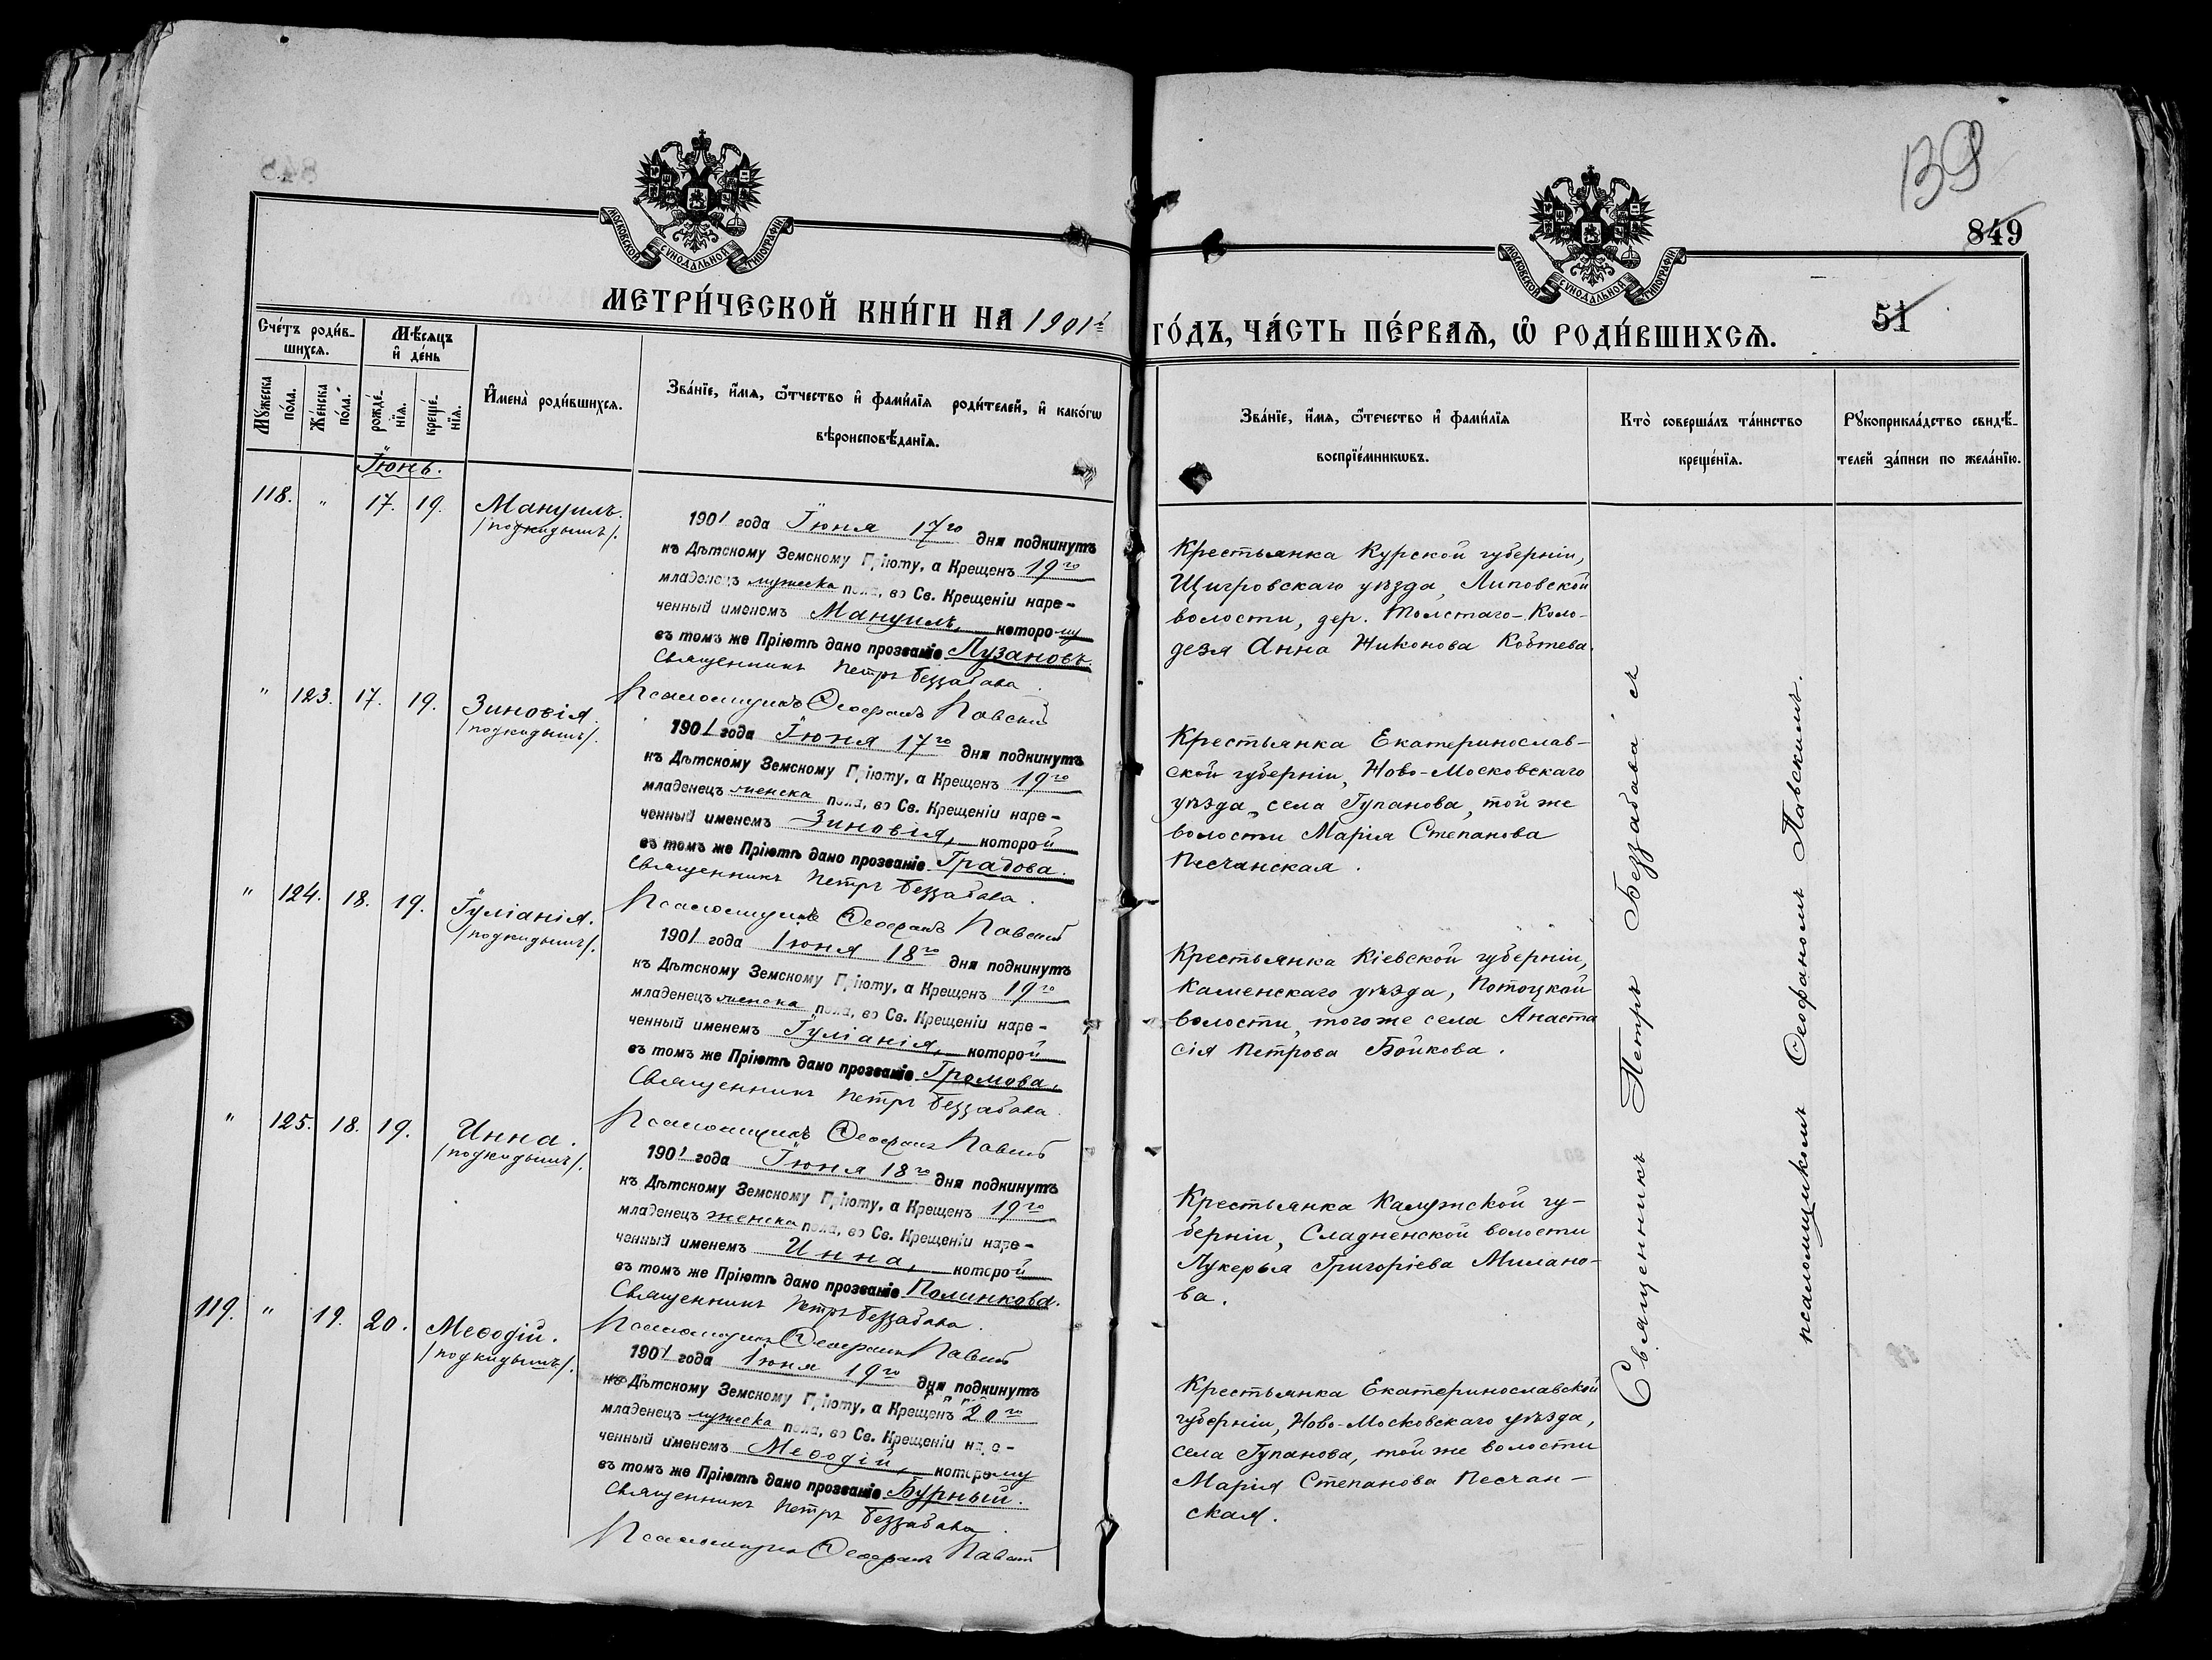 139
849
51
МОСКОВСКОЙ СУНОДАЛЬНОЙ ТИПОГРАФІИ
МОСКОВСКОЙ СУНОДАЛЬНОЙ ТИПОГРАФІИ
МЕТРИ́ЧЕСКОЙ КНИ́ГИ НА 1901й
ГО́ДЪ, ЧА́СТЬ ПЕ́РВАѦ, Ѽ РОДИ́ВШИХСѦ.
Сче́тъ роди́в-
шихсѧ.
Мѣ́сѧцъ
и҆ де́нь
Мꙋ́жеска
по́ла.
Же́нска
по́ла.
рожде́-
нїѧ.
креще́-
нїѧ.
И҆мена̀ роди́вшихсѧ.
Зва́нїе, и҆́мѧ, ѻ҆́тчество и҆ фами́лїѧ роди́телей, и҆ како́гѡ
вѣроисповѣ́данїѧ.
Зва́нїе, и҆́мѧ, ѻ҆́течество и҆ фами́лїѧ
воспрїе́мникѡвъ.
Кто̀ соверша́лъ та́инство
креще́нїѧ.
Рꙋкоприкла́дство свидѣ́-
телей за́писи по жела́нїю.
Іюнь.
118. " 17. 19. Мануилъ.
/подкидышъ/.
1901 года Іюня 17го дня подкинутъ
къ Дѣтскому Земскому Пріюту, а Крещенъ 19го
младенецъ мужеска пола, во Св. Крещеніи наре-
ченный именемъ Мануилъ, которому
въ томъ же Пріютѣ дано прозваніе Лузановъ.
Священникъ Петръ Беззабава.
Псаломщикъ Ѳеофанъ Павскій
Крестьянка Курской губерніи,
Щигровскаго уѣзда, Липовской
волости, дер. Толстаго-Коло-
дезя Анна Никонова Ковтева.
" 123. 17. 19. Зиновія.
/подкидышъ/.
1901 года Іюня 17го дня подкинутъ
къ Дѣтскому Земскому Пріюту, а Крещенъ 19го
младенецъ женска пола, во Св. Крещеніи наре-
ченный именемъ Зиновія, которой
въ томъ же Пріютѣ дано прозваніе Градова.
Священникъ Петръ Беззабава.
Псаломщикъ Ѳеофанъ Павскій
Крестьянка Екатеринослав-
ской губерніи, Ново-Московскаго
уѣзда, села Гупанова, той же
волости Марія Степанова
Песчанская.
" 124. 18. 19. Іуліанія.
/подкидышъ/.
1901 года Іюня 18го дня подкинутъ
къ Дѣтскому Земскому Пріюту, а Крещенъ 19го
младенецъ женска пола, во Св. Крещеніи наре-
ченный именемъ Іуліанія, которой
въ томъ же Пріютѣ дано прозваніе Громова,
Священникъ Петръ Беззабава.
Псаломщикъ Ѳеофанъ Павскій
Крестьянка Кіевской губерніи,
Каменскаго уѣзда, Потоцкой
волости, того же села Анаста
сія Петрова Бойкова.
" 125. 18. 19. Инна.
/подкидышъ/.
1901 года Іюня 18го дня подкинутъ
къ Дѣтскому Земскому Пріюту, а Крещенъ 19го
младенецъ женска пола, во Св. Крещеніи наре-
ченный именемъ Инна, которой
въ томъ же Пріютѣ дано прозваніе Полинкова.
Священникъ Петръ Беззабава.
Псаломщикъ Ѳеофанъ Павскій
Крестьянка Калужской гу-
берніи, Сладненской волости
Лукерья Григоріева Милано-
ва.
119. " 19. 20. Меѳодій.
/подкидышъ/.
1901 года Іюня 19го дня подкинутъ
къ Дѣтскому Земскому Пріюту, а Крещенъ 20го
младенецъ мужеска пола, во Св. Крещеніи наре-
ченный именемъ Меѳодій, которому
въ томъ же Пріютѣ дано прозваніе Бурный.
Священникъ Петръ Беззабава.
Псаломщикъ Ѳеофанъ Павскій
Крестьянка Екатеринославской
губерніи, Ново-Московскаго уѣзда,
села Гупанова, той же волости
Марія Степанова Песчан-
ская.
Священникъ Петръ Беззабава съ
псаломщикомъ Ѳеофаномъ Павскимъ.